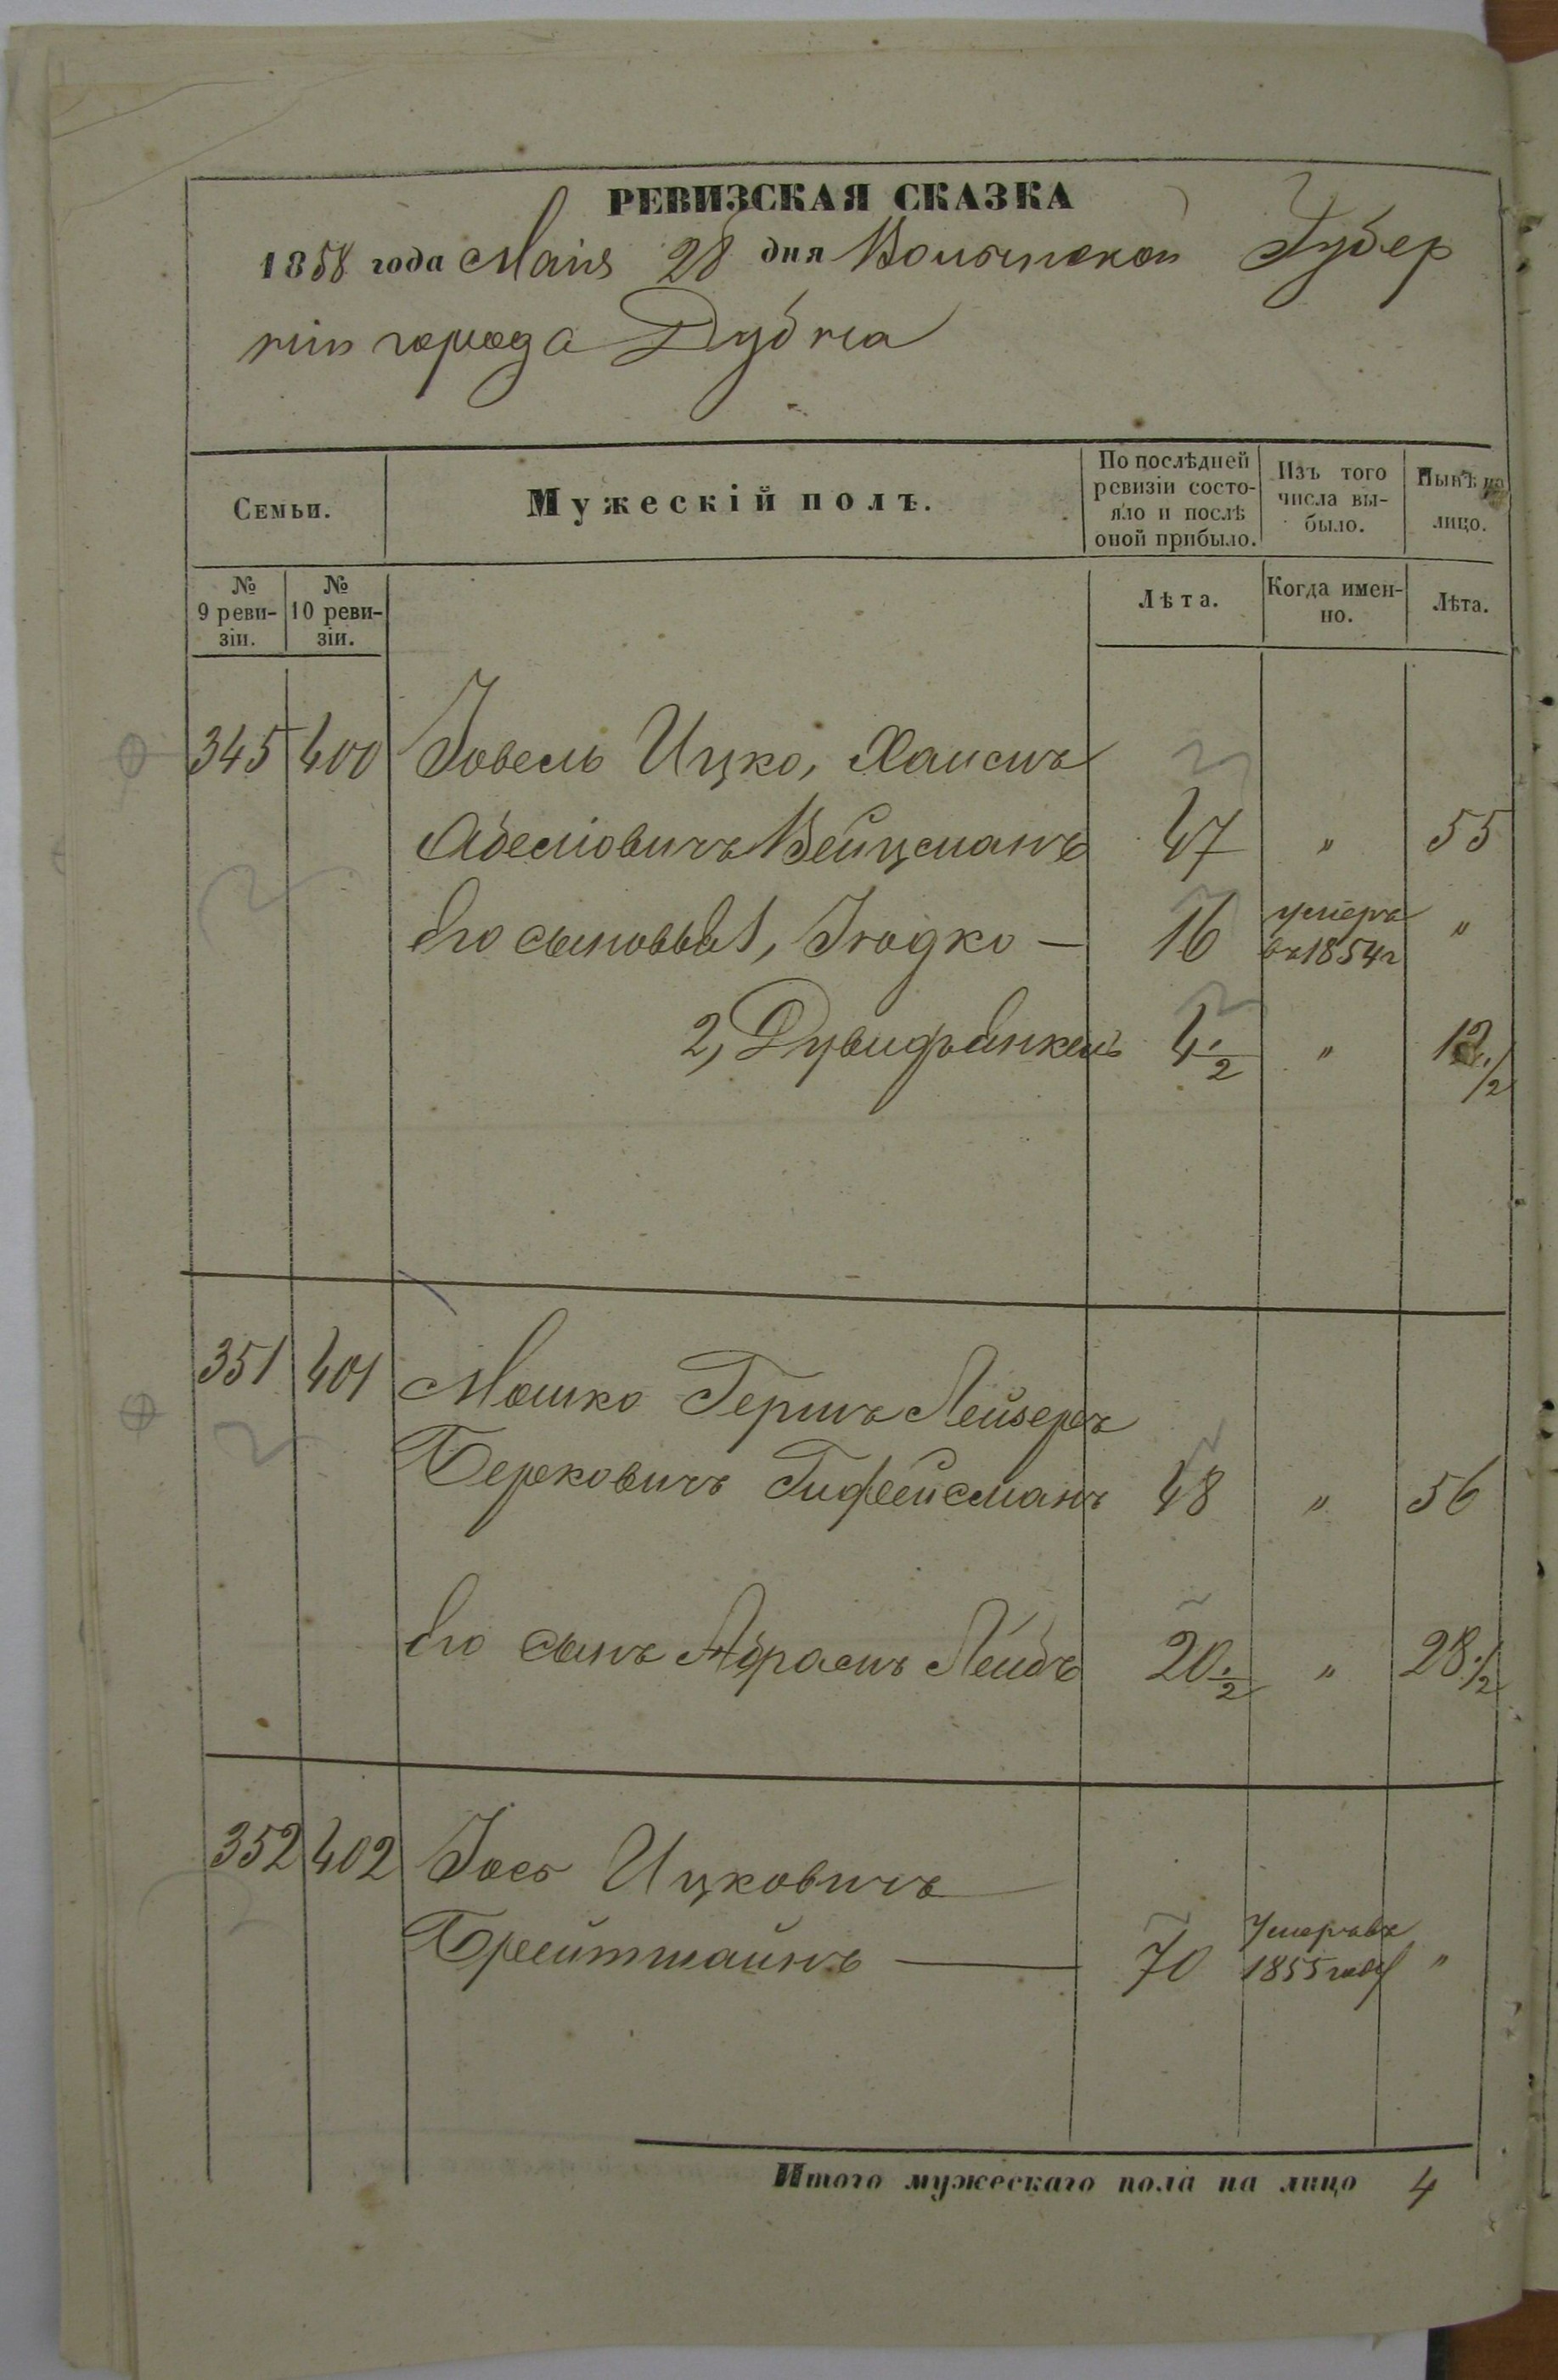 РЕВИЗСКАЯ СКАЗКА
1858 года Маія 28 дня Волынской Губер
ніи города Дубна
Семьи.
Мужескій полъ.
По послѣдней ревизіи состо-
яло и послѣ
оной прибыло.
Изъ того
числа вы-
было.
Нынѣ на
лицо.
№
9 реви-
зіи.
№
10 реви-
зіи.
Лѣта.
Когда имен-
но.
Лѣта.
345 400 Іовель Ицко, Хаимъ
Абелιовичъ Вейцманъ 47 " 55
Его сыновья 1, Іюдко — 16 умеръ въ 1854 г "
2, Дувидъ Янкель 4 1/2 " 12 1/2
351 401 Мошко Гершъ Лейзеръ
Берковичъ 48 " 56
Его сынъ Абрамъ Лейбъ 20 1/2 " 28 1/2
352 402 Іось Ицковичъ
Брейтшайнъ — 70 Умеръ въ 1855 году "
Итого мужескаго пола на лицо 4